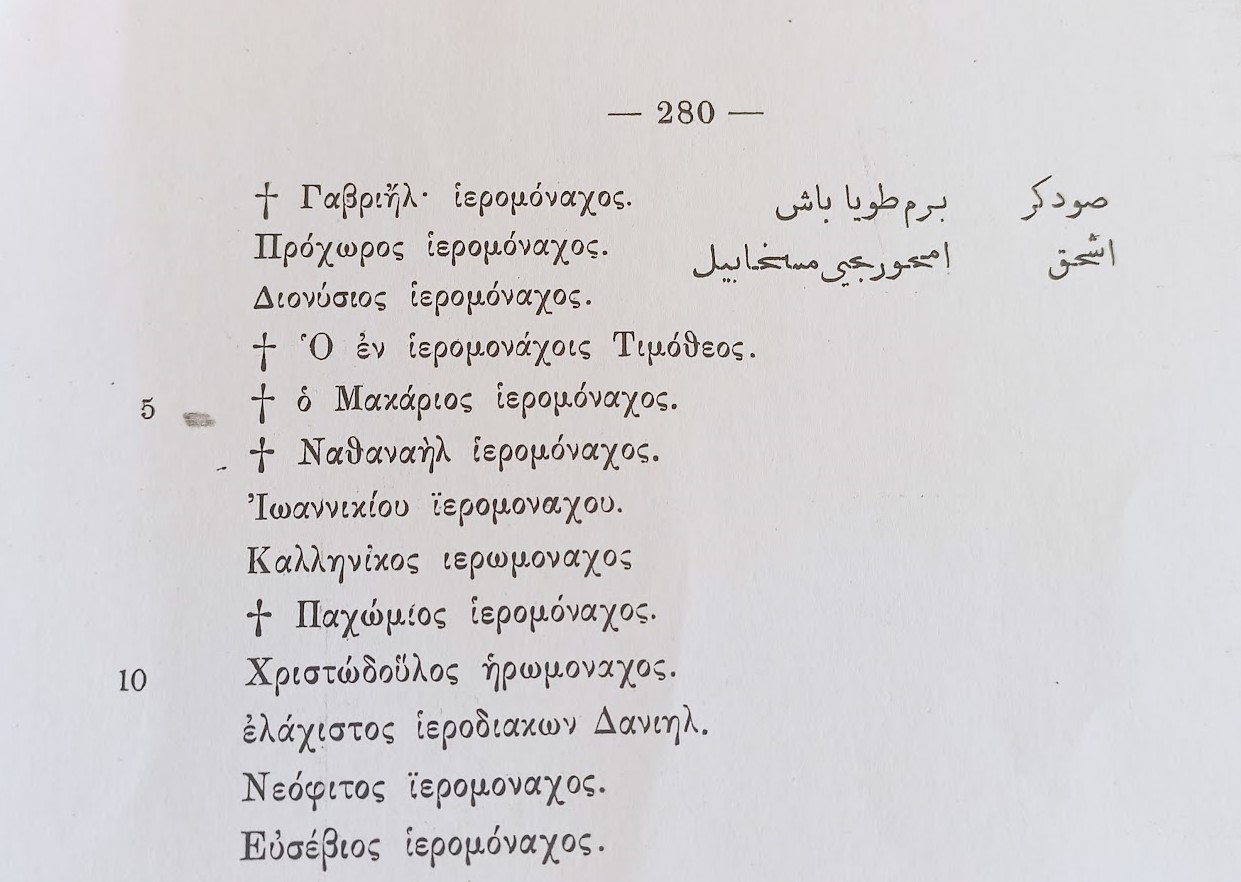 — 280 —
† Γαβριῆλ· ἱερομόναχος. برم طويا باش صودكر
Πρόχωρος ἱερομόναχος. اشحق
Διονύσιος ἱερομόναχος.
† Ὁ ἐν ἱερομονάχοις Τιμόθεος.
5 † ὁ Μακάριος ἱερομόναχος.
† Ναθαναὴλ ἱερομόναχος.
Ἰωαννικίου ϊερομοναχου.
Καλληνίκος ιερωμοναχος
† Παχώμίος ἱερομόναχος.
10 Χριστώδοΰλος ἡρωμοναχος.
ἐλάχιστος ἱεροδιακων Δανιηλ.
Νεόφιτος ϊερομοναχος.
Εὐσέβιος ἱερομόναχος.